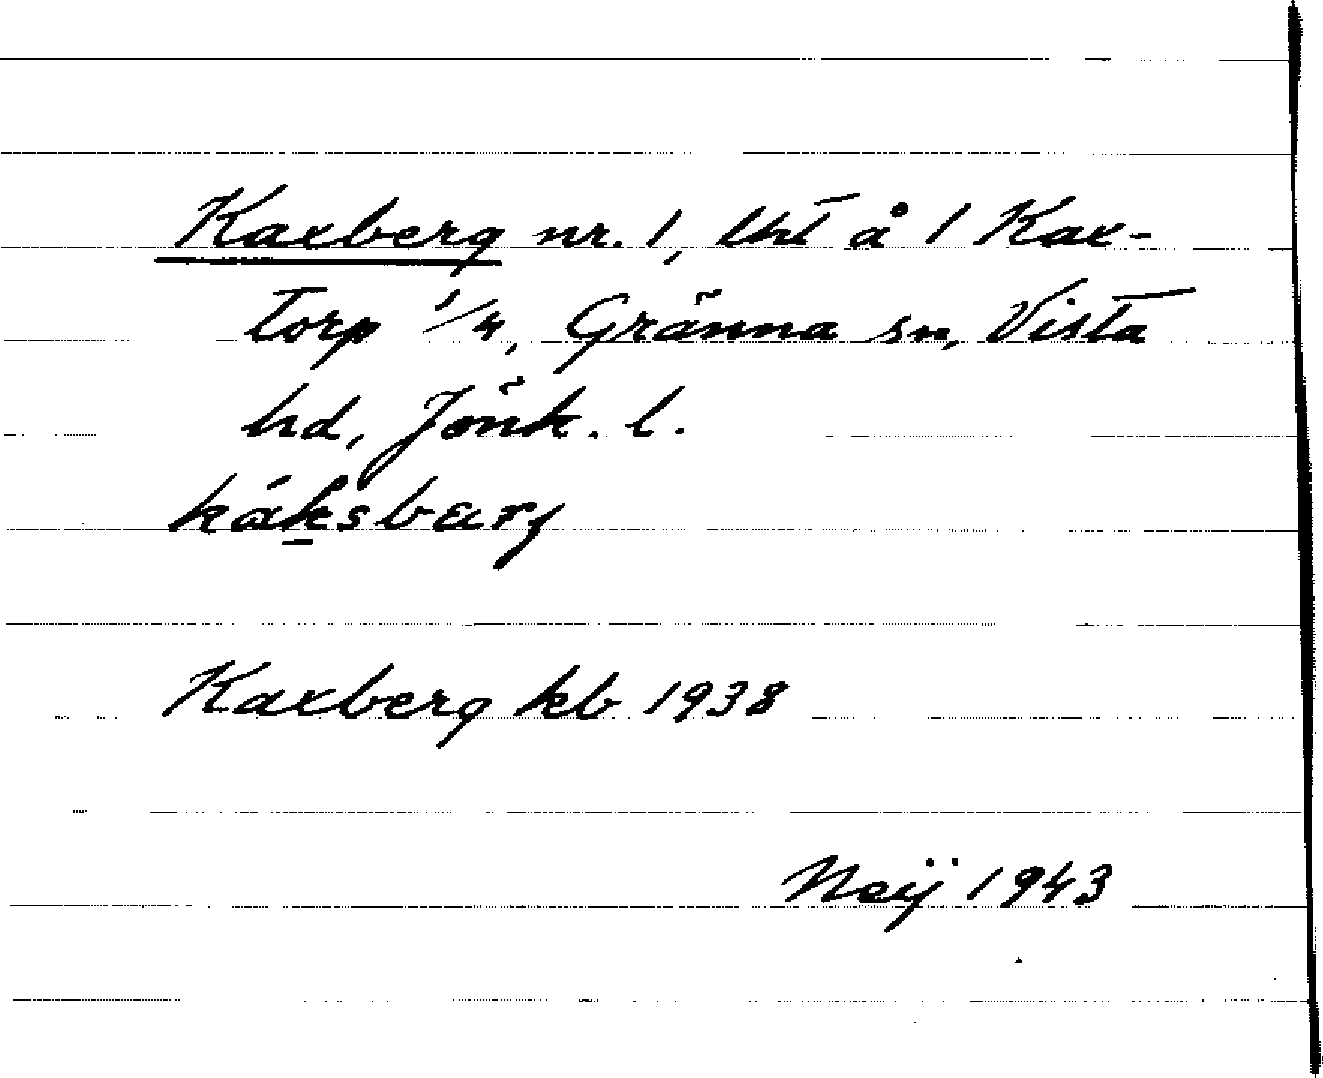 Kaxberg nr. 1, lht å 1 Kax-
torp 1/4, Gränna sn, Vista
hd, Jönk. l.
káksbærj
Kaxberg kb 1938
Neij 1943